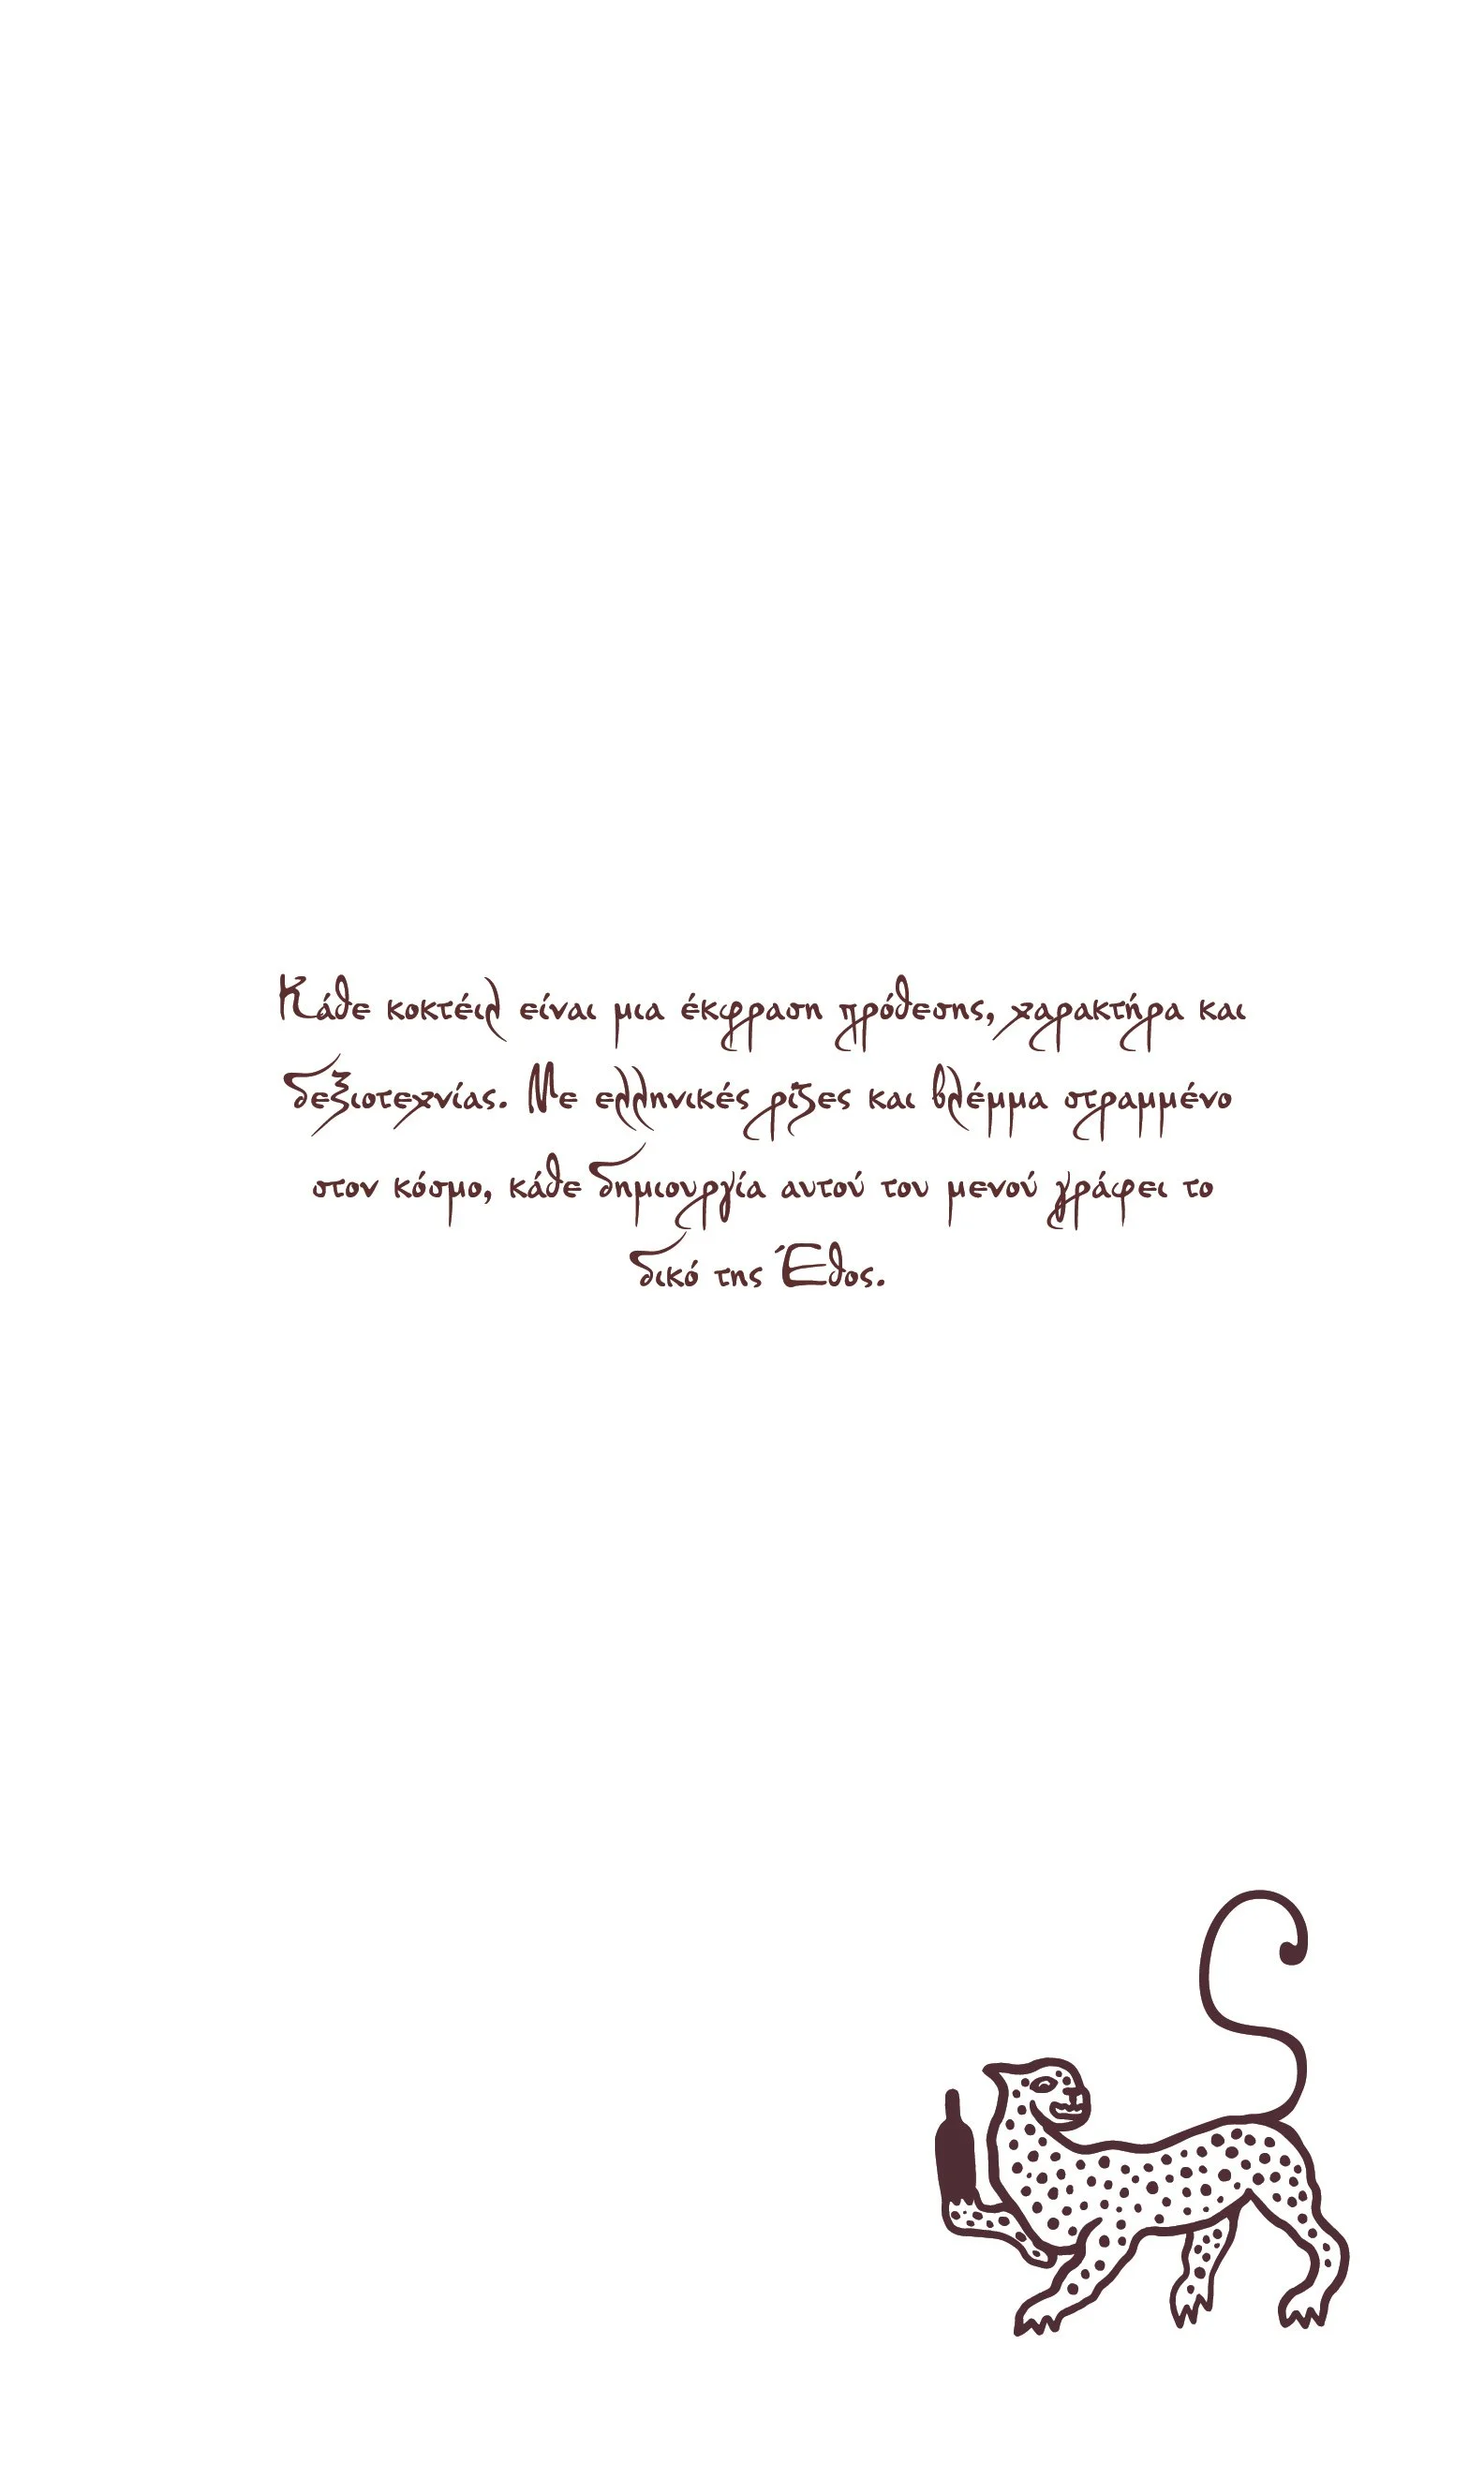 Κάθε κοκτέιλ είναι μια έκφραση πρόθεσης, χαρακτήρα και
δεξιοτεχνίας. Με ελληνικές ρίζες και βλέμμα στραμμένο
στον κόσμο, κάθε δημιουργία αυτού του μενού γράφει το
δικό της Έθος.